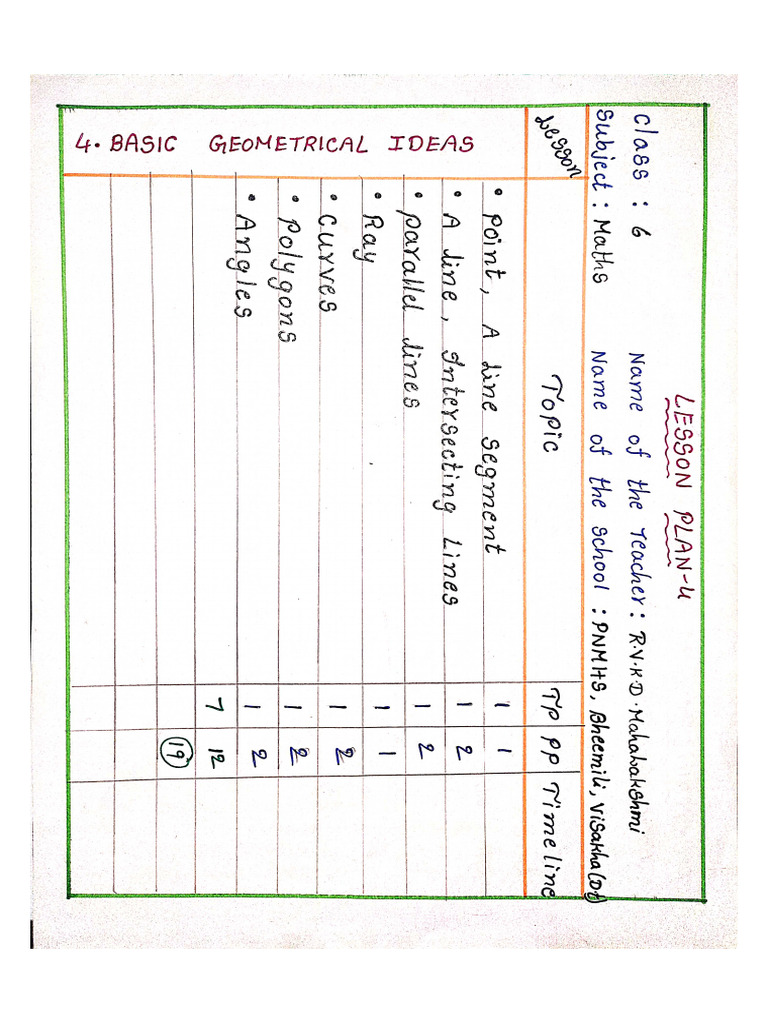 LESSON PLAN-4
Class : 6 Name of the Teacher : R.V.K.D. Mahalakshmi
Subject : Maths Name of the School : PNMHS, Bheemili, Visakha(Dt)
Lesson Topic TP PP Timeline
4. BASIC GEOMETRICAL IDEAS
• Point, A Line segment 1 1
• A line, Intersecting Lines 1 2
• Parallel lines 1 2
• Ray 1 1
• Curves 1 2
• Polygons 1 2
• Angles 1 2
7 12
19